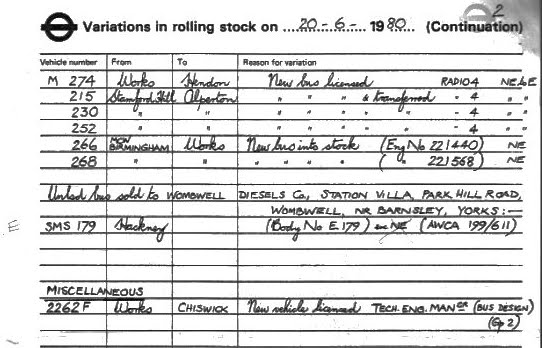 2
Variations in rolling stock on 20-6- 1980 (Continuation)
Vehicle number From To Reason for variation
M 274 Works Hendon New bus licensed RADIO 4 NE&E
215 Stamford Hill Alperton " " " & transferred " 4 " "
230 " " " " " " - 4 " "
252 " " " " " " - 4 " "
266 MCW BIRMINGHAM Works New bus into stock (Eng No 221440) NE
268 " " " " " " ( " 221568) NE
Unlic'd bus sold to WOMBWELL DIESELS Co., STATION VILLA, PARK HILL ROAD,
WOMBWELL, NR BARNSLEY, YORKS:—
E SMS 179 Hackney (Body No E.179) exc NE (AWCA 199/611)
MISCELLANEOUS
2262F Works CHISWICK New vehicle licensed TECH. ENG. MANGR (BUS DESIGN)
(Gp 2)